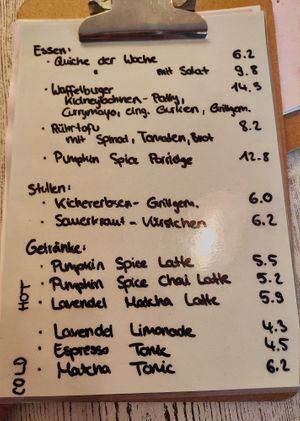 Essen:
· Quiche der Woche 6.2
" mit Salat 9.8
· Waffelburger 14.3
Kidneybohnen-Patty,
Currymayo, eing. Gurken, Grillgem.
· Rührtofu 8.2
mit Spinat, Tomaten, Brot
· Pumpkin Spice Porridge 12.8
Stullen:
· Kichererbsen-Grillgem. 6.0
· Sauerkraut-Würstchen 6.2
Getränke:
HOT
· Pumpkin Spice Latte 5.5
· Pumpkin Spice Chai Latte 5.2
· Lavendel Matcha Latte 5.9
COLD
· Lavendel Limonade 4.3
· Espresso Tonic 4.5
· Matcha Tonic 6.2